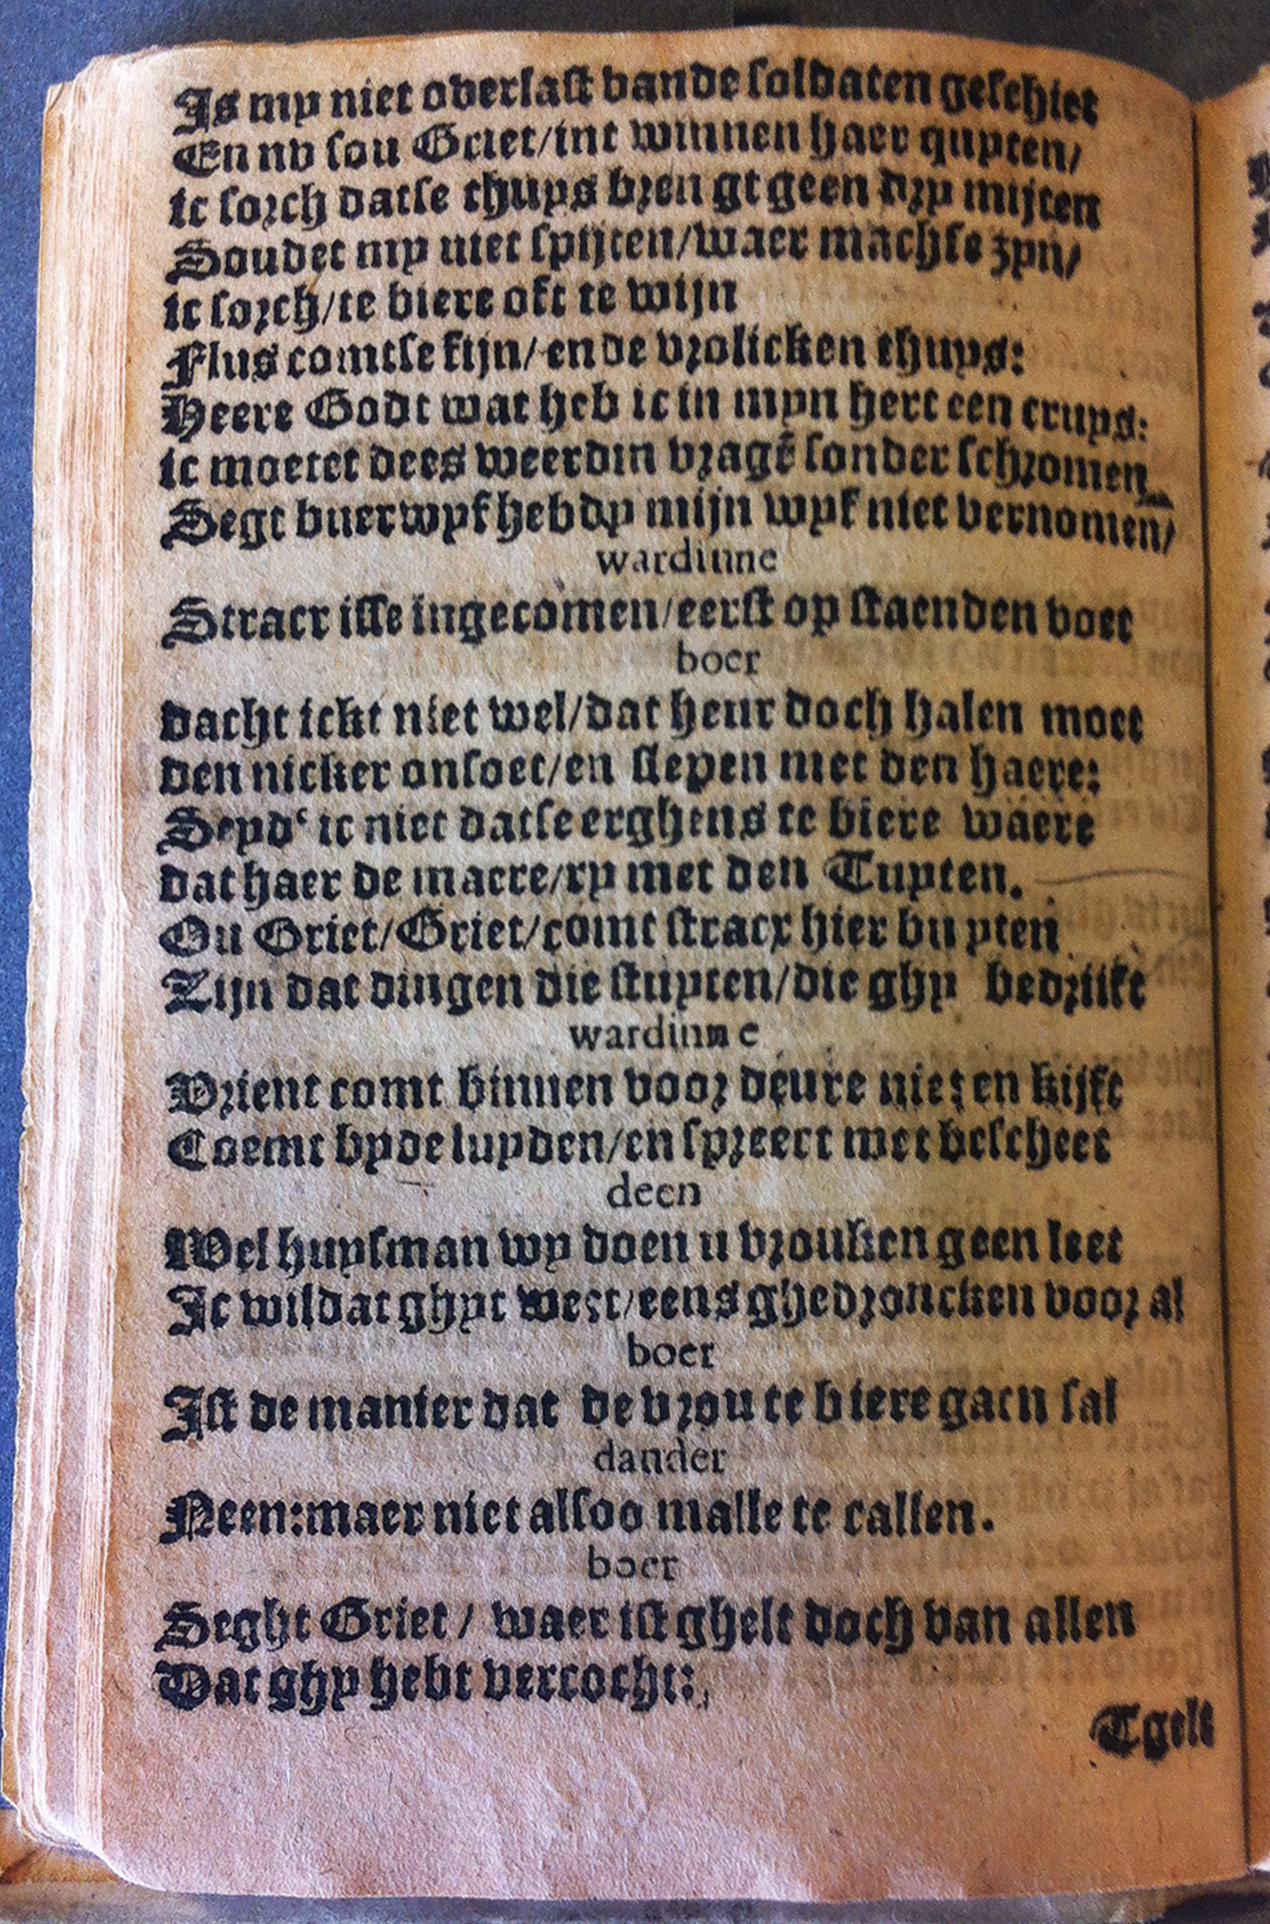 Is my niet overlast vande soldaten geschiet
En nv sou Griet/int winnen haer quyten/
ic sorch datse thuys bren gt geen dry mijten
Soudet my niet spijten/waer machse zyn/
ic sorch/te biere oft te wijn
Flus comtse fijn/ende vrolicken thuys:
Heere Godt wat heb ic in myn hert een cruys:
ic moetet dees weerdin vragē sonder schromen
Segt buerwyf hebdy mijn wyf niet vernomen/
wardinne
Stracx isse ingecomen/eerst op staenden voet
boer
dacht ickt niet wel/dat heur doch halen moet
den nicker onsoet/en slepen met den haere:
Seyd' ic niet datse erghens te biere waere
dat haer de marre/ry met den Tuyten.
Ou Griet/Griet/comt stracx hier buyten
Zijn dat dingen die stuyten/die ghy bedrijft
wardinne
Vrient comt binnen voor deure niet en kijft
Coemt byde luyden/en spreect met bescheet
deen
Wel huysman wy doen u vrouken geen leet
Ic wil dat ghyt weet/eens ghedroncken voor al
boer
Ist de manier dat de vrou te biere gaen sal
dander
Neen:maer niet alsoo malle te callen.
boer
Seght Griet/ waer ist ghelt doch van allen
Dat ghy hebt vercocht:
Tgelt